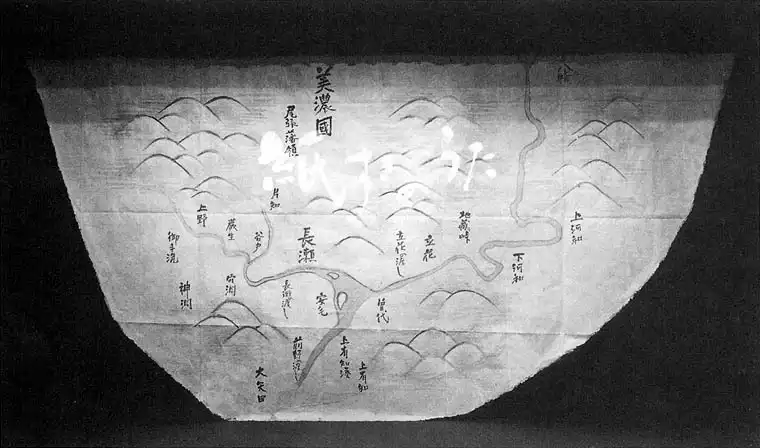 美濃國
尾張藩領
紙すきうた
上河和
下河和
地蔵峠
立花
立花渡し
長瀬
長瀬渡し
安毛
片知
谷戸
蕨生
上野
御手洗
上有知
上有知湊
前野渡し
大矢田